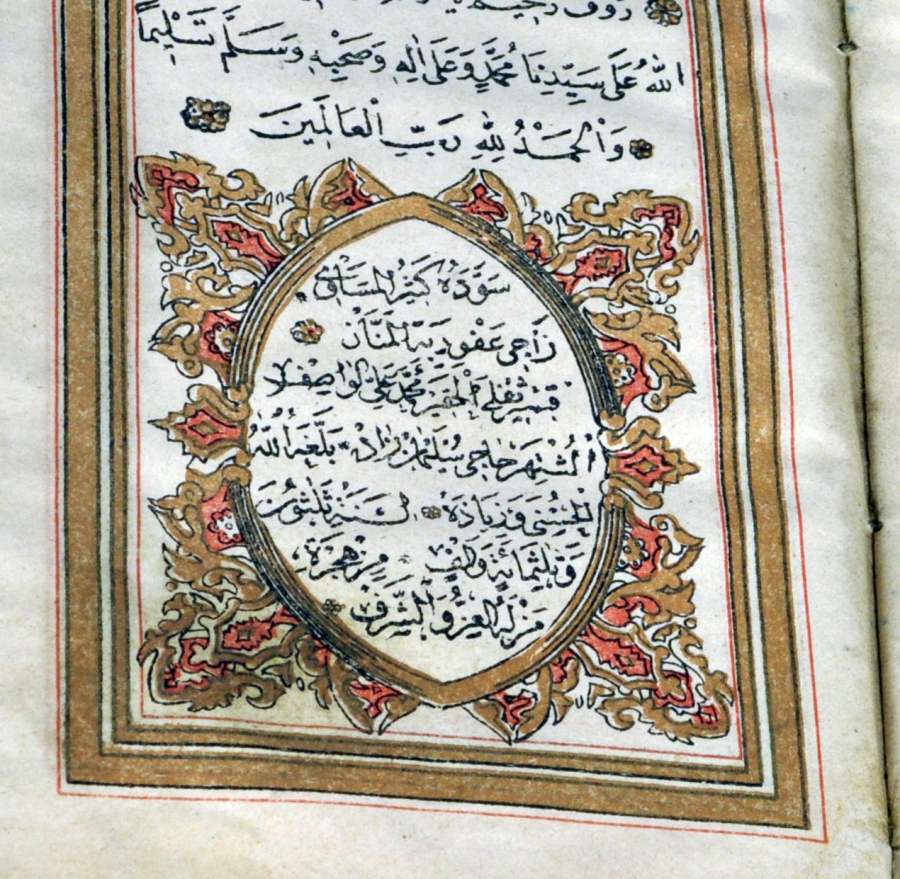 رؤف رحيم
الله على سيدنا محمد وعلى اله وصحبه وسلم تسليما
والحمد لله رب العالمين
سوده كثير المساوى
راجى عفو ربه المنان
محمد على الواصفى
الشهير حاجى سليمان زاده بلغه الله
الحسنى وزيادة لسنة ثلثون
وثلثمائة والف من هجرة
من له العز والشرف